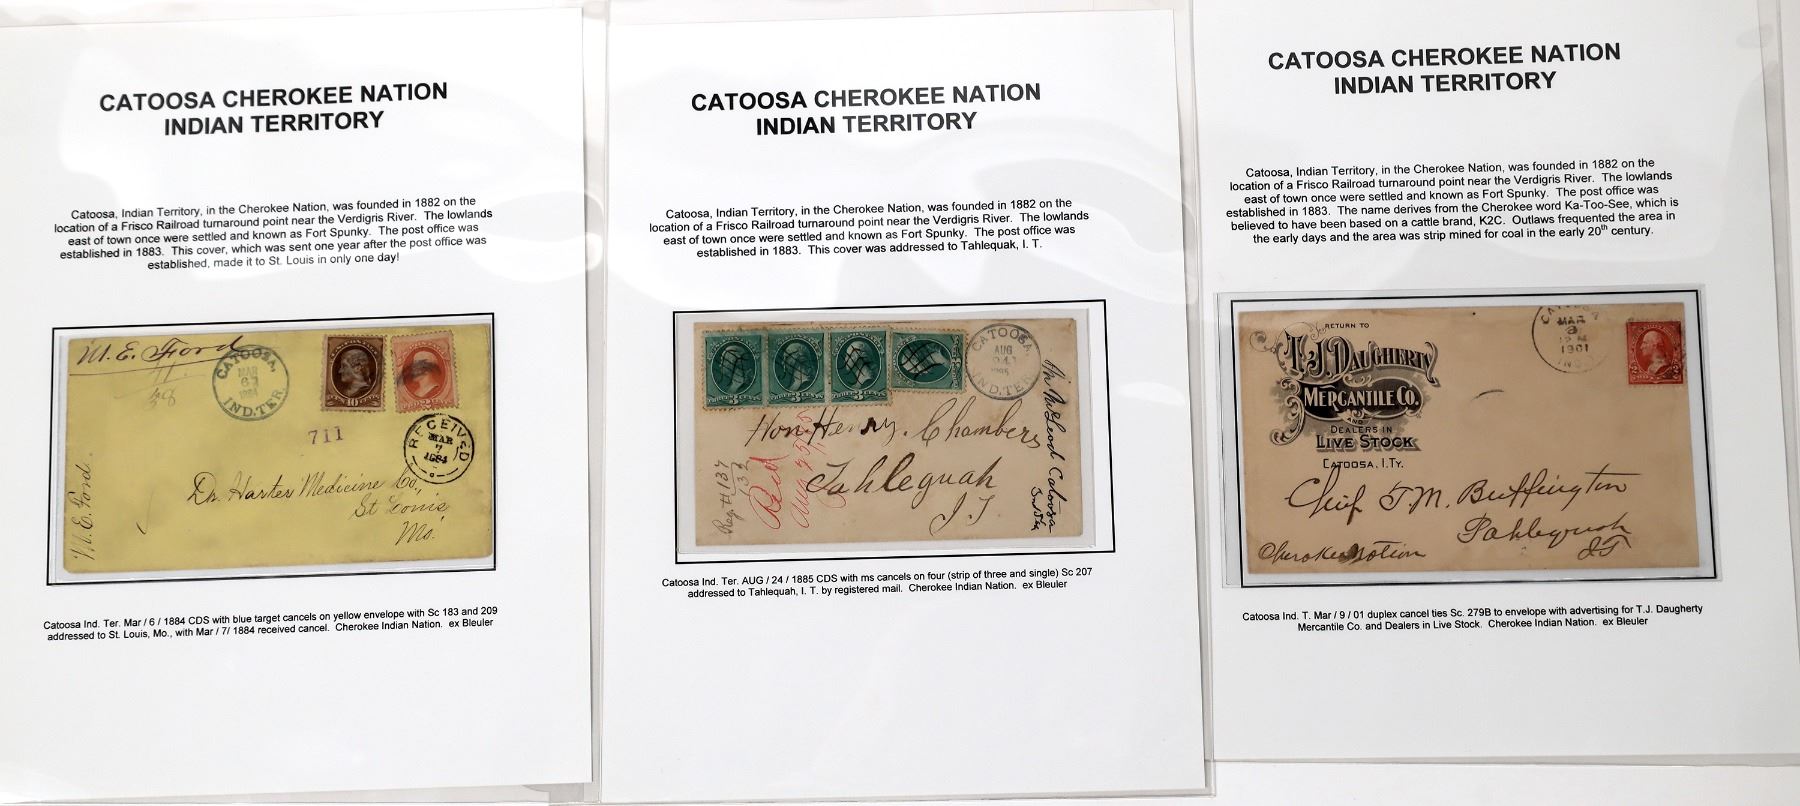 CATOOSA CHEROKEE NATION
INDIAN TERRITORY
Catoosa, Indian Territory, in the Cherokee Nation, was founded in 1882 on the
location of a Frisco Railroad turnaround point near the Verdigris River. The lowlands
east of town once were settled and known as Fort Spunky. The post office was
established in 1883. This cover, which was sent one year after the post office was
established, made it to St. Louis in only one day!
M. E. Ford
CATOOSA,
MAR
6
1884
IND.TER.
10
711
RECEIVED
MAR
7
1884
M. E. Ford.
Dr. Harter Medicine Co.,
St Louis
Mo.
Catoosa Ind. Ter. Mar / 6 / 1884 CDS with blue target cancels on yellow envelope with Sc 183 and 209
addressed to St. Louis, Mo., with Mar / 7/ 1884 received cancel. Cherokee Indian Nation. ex Bleuler
CATOOSA CHEROKEE NATION
INDIAN TERRITORY
Catoosa, Indian Territory, in the Cherokee Nation, was founded in 1882 on the
location of a Frisco Railroad turnaround point near the Verdigris River. The lowlands
east of town once were settled and known as Fort Spunky. The post office was
established in 1883. This cover was addressed to Tahlequak, I. T.
CATOOSA,
AUG
24
IND.TER.
Hon. Henry. Chambers
Tahlequah
I. T.
Reg. # 137
Rec'd
Aug 25/85
McLeod Catoosa
Ind Ter
Catoosa Ind. Ter. AUG / 24 / 1885 CDS with ms cancels on four (strip of three and single) Sc 207
addressed to Tahlequah, I. T. by registered mail. Cherokee Indian Nation. ex Bleuler
CATOOSA CHEROKEE NATION
INDIAN TERRITORY
Catoosa, Indian Territory, in the Cherokee Nation, was founded in 1882 on the
location of a Frisco Railroad turnaround point near the Verdigris River. The lowlands
east of town once were settled and known as Fort Spunky. The post office was
established in 1883. The name derives from the Cherokee word Ka-Too-See, which is
believed to have been based on a cattle brand, K2C. Outlaws frequented the area in
the early days and the area was strip mined for coal in the early 20th century.
RETURN TO
T.J. DAUGHERTY
MERCANTILE CO.
AND
DEALERS IN
LIVE STOCK
CATOOSA, I.TY.
MAR
1901
Chief T. M. Buffington
Tahlequah
I T
Cherokee Nation
Catoosa Ind. T. Mar / 9 / 01 duplex cancel ties Sc. 279B to envelope with advertising for T.J. Daugherty
Mercantile Co. and Dealers in Live Stock. Cherokee Indian Nation. ex Bleuler